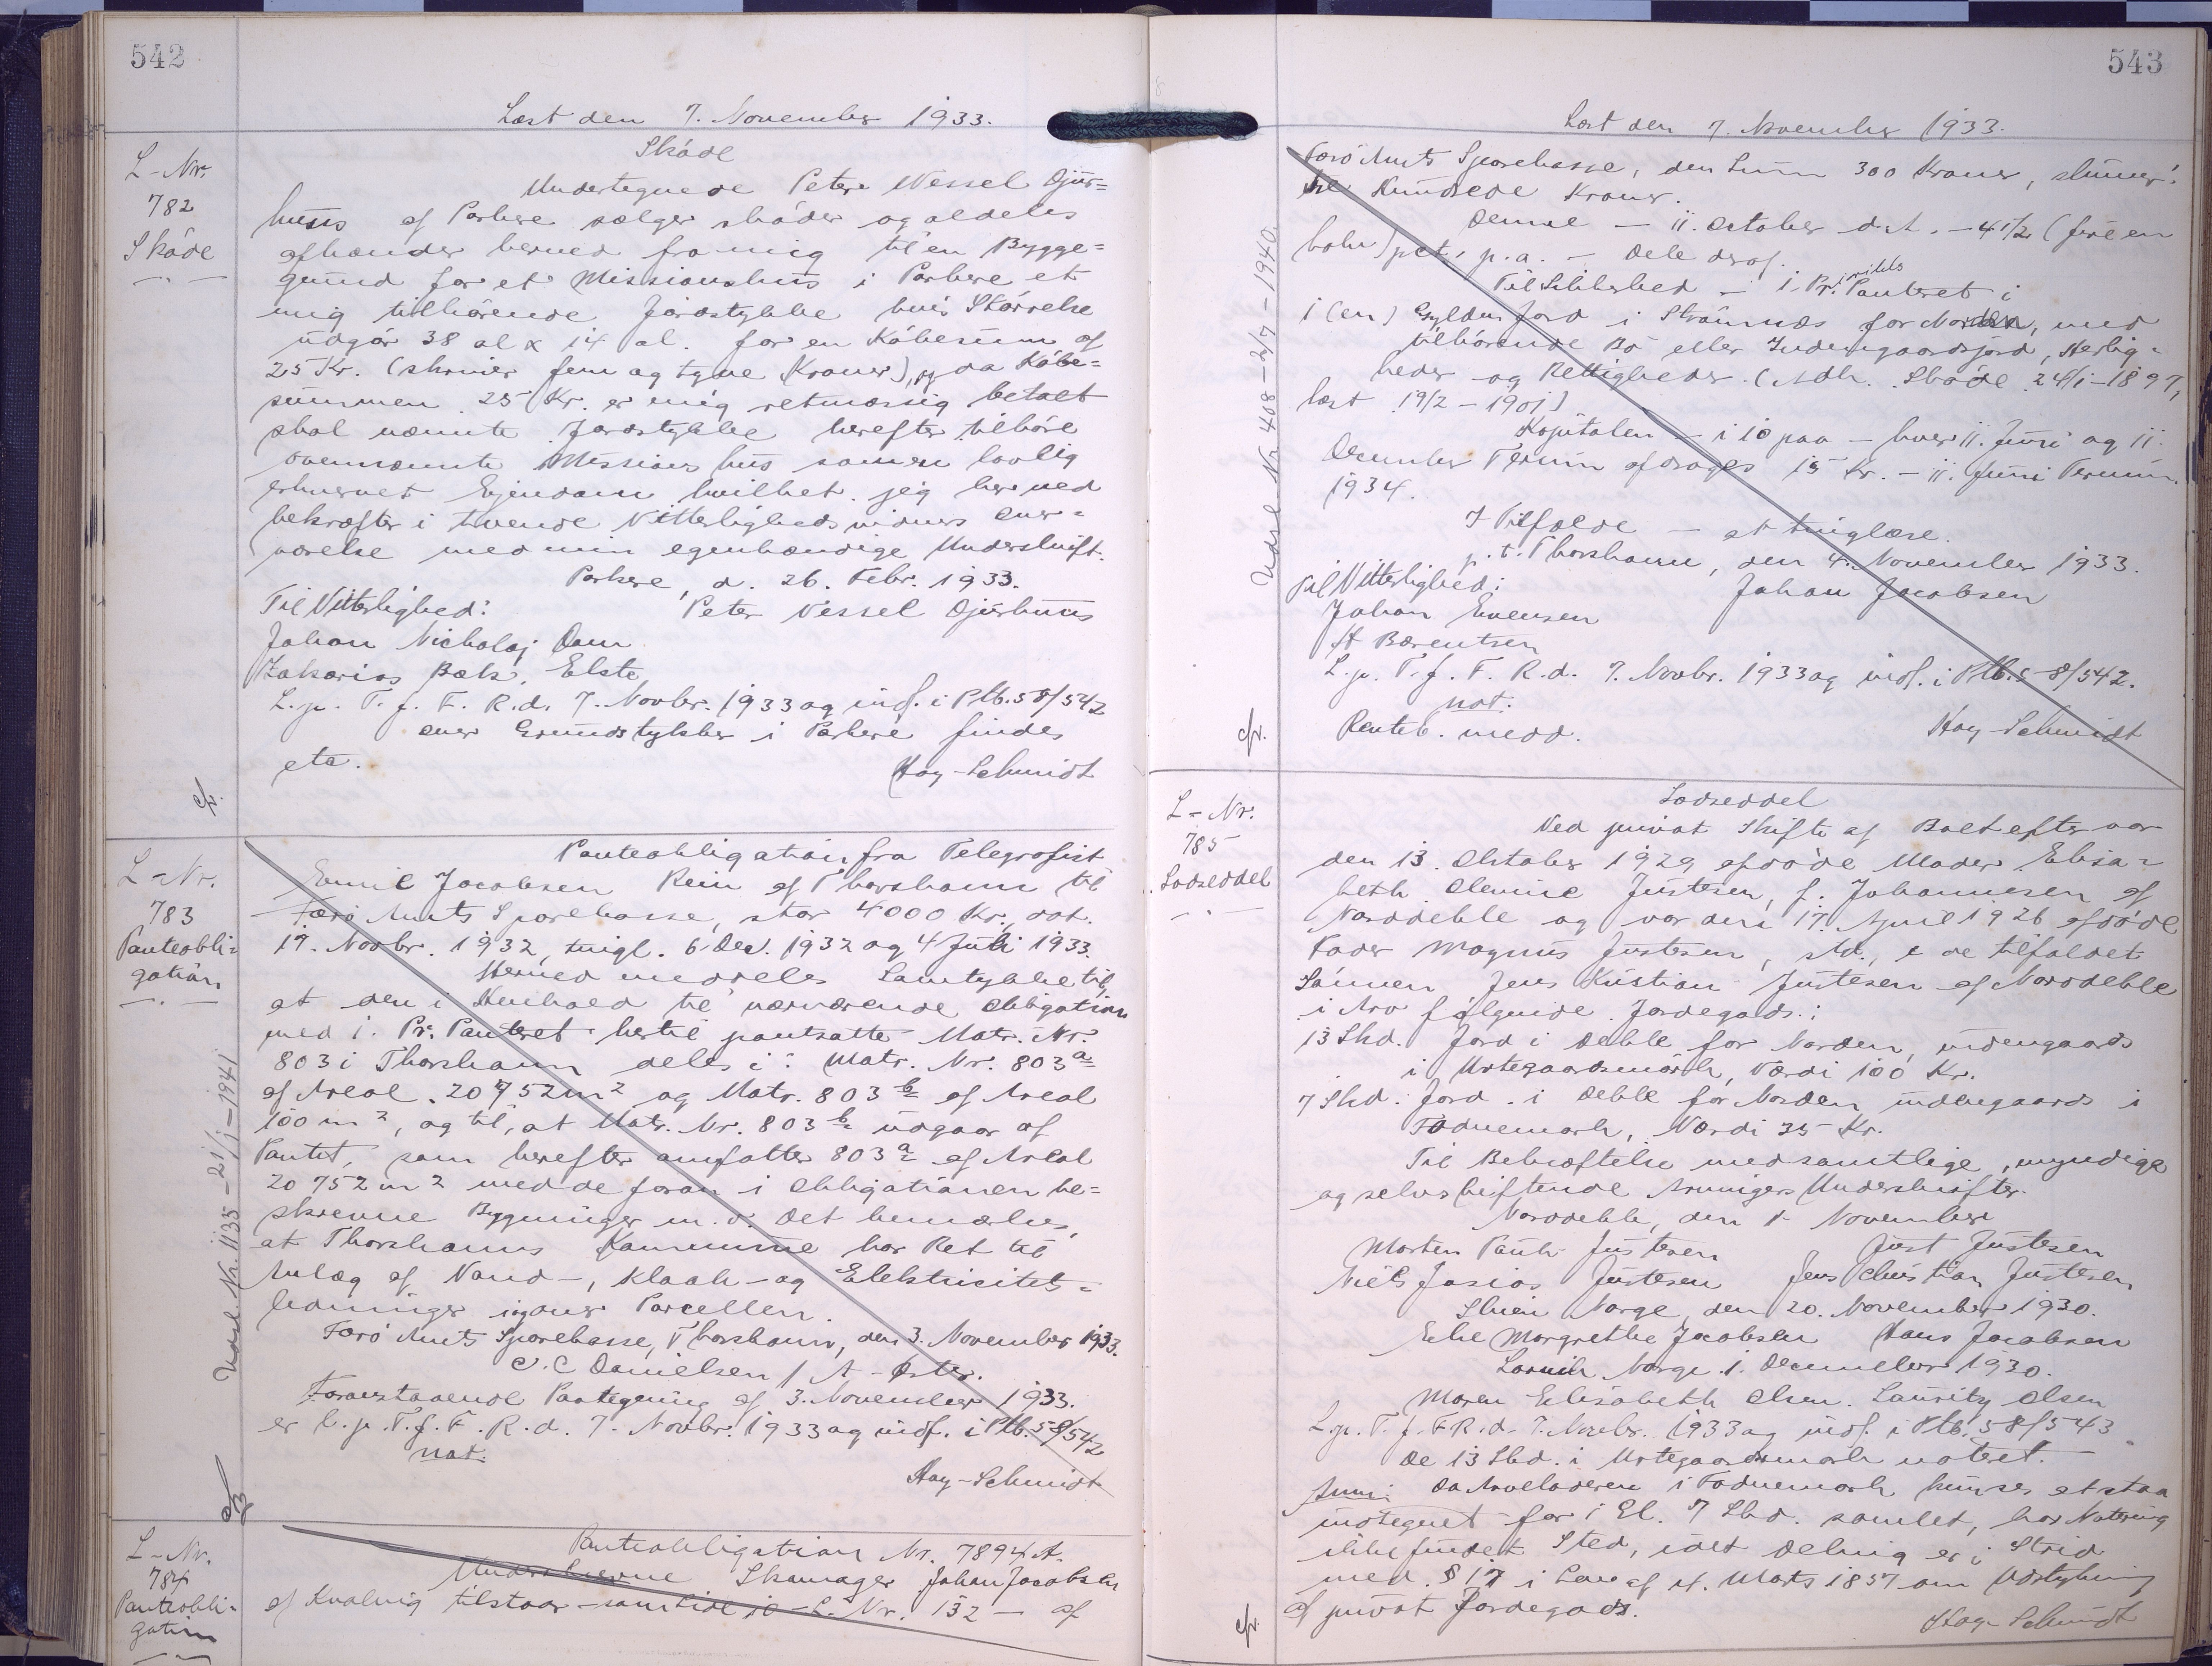 542
Læst den 7. November 1933.
L-Nr.
782
Sköde
Sköde
Undertegnede Peter Wessel Djur=
huus af Porkere sælger sköder og aldeles
afhænder herved fra mig til en Bygge=
grund for et Missionshus i Porkere et
mig tilhörende Jordstykke hvis Störrelse
udgör 38 al x 14 al. for en Köbesum af
25 Kr. (skriver fem og tyve Kroner), og da Köbe=
summen 25 Kr. er mig retmæssig betalt
skal nævnte Jordstykke herefter tilhöre
ovennævnte Missionshus som en lovlig
erhvervet Ejendom hvilket jeg herved
bekræfter i tvende Vitterlighedsvidners over=
værelse med min egenhændige Underskrift.
Porkere, d. 26. Febr. 1933.
Til Vitterlighed: Peter Wessel Djurhuus
Johan Nicholaj Dam
Zakarias Bæk, Elste
L.p. T. f. F. R.d. 7. Novbr. 1933 og indf. i Ptb. 58/542
over Grundstykker i Porkere findes
eta.
Hoy-Schmidt
cfr.
L-Nr.
783
Panteobli=
gation
Udsl. Nr. 1135 - 21/1 - 1941
Panteobligation fra Telegrafist
Emil Jacobsen Rein af Thorshavn til
Færö Amts Sparekasse, stor 4000 Kr., dat.
17. Novbr. 1932, tingl. 6 Dec. 1932 og 4 Juli 1933.
Herved meddeles Samtykke til,
at den i Henhold til nærværende Obligation
med 1. Pr. Panteret hertil pantsatte Matr. Nr.
803 i Thorshavn deles i: Matr. Nr. 803 a
af Areal 20752 m2 og Matr. 803 b af Areal
100 m2, og til, at Matr. Nr. 803 b udgaar af
Pantet, som herefter omfatter 803 a af Areal
20752 m2 med de foran i Obligationen be=
skrevne Bygninger m.v. Det bemærkes,
at Thorshavns Kommune har Ret til
Anlæg af Vand-, Kloak- og Elektricitets=
ledninger igennem Parcellen.
Færö Amts Sparekasse, Thorshavn, den 3. November 1933.
C. C Danielsen / A-
Foranstaaende Paategning af 3. November 1933.
er l.p. T. f. F. R.d. 7. Novbr. 1933 og indf. i Ptb. 58/542
not.
Hoy-Schmidt
L-Nr.
784
Panteobli=
gation
Panteobligation Nr. 7894 A.
Underskrevne Skomager Johan Jacobsen
af Kvalvig tilstaar - samtidl jo - L. Nr. 132 - af
543
Læst den 7. November 1933.
Færö Amts Sparekasse, den Sum 300 Kroner, skriver:
tre Hundrede Kroner.
Denne - 11. October d.A. - 4 1/2 (fire en
halv) pct. p.a. - Dele deraf.
Til Sikkerhed - 1. Prioritets Panteret i
1 (en) Gylden Jord i Strömnæs for Norden, med
tilhörende Bö eller Indengaardsjord, Herlig=
heder og Rettigheder. (Adk. Sköde 24/1-1897,
læst 19/2-1901)
Kapitalen - i 10 paa - hver 11. Juni og 11.
December Termin afdrages 15 Kr. - 11. Juni Termin
1934.
I Tilfælde - at tinglæse.
p.t. Thorshavn, den 4. November 1933.
Til Vitterlighed: Johan Jacobsen
Johan Evensen
H Bærentsen
L.p. T. f. F. R.d. 7. Novbr. 1933 og indf. i Ptb. 58/542.
not.
Renteb. medd. Hoy-Schmidt
Udsl. Nr. 408 - 2/7 - 1940
cfr.
L-Nr.
785
Lodseddel
Lodseddel
Ved privat Skifte af Boet efter vor
den 13. Oktober 1929 afdöde Moder Elisa=
beth Jústesen, f. Johannesen af
Norddeble og vor den 17 April 1926 afdöde
Fader Magnus Justesen, sst., e de tilfaldet
Sönnen Jens Kristian Justesen af Norddeble
i Arv fölgende Jordegods:
13 Skd. Jord i Deble for Norden, indengaards
i Urtegaardsmörk, Værdi 100 Kr.
7 Skd. Jord i Deble for Norden indengaards i
Fodnemark, Værdi 35 Kr.
Til Bekræftelse med samtlige, myndige
og selvskiftende Arvingers Underskrifter.
Norddeble, den 1. November
Morten Pauli Justesen Just Justesen
Niels Josias Justesen Jens Christian Justesen
Skien Norge, den 20. November 1930.
Else Margrethe Jacobsen Hans Jacobsen
Larvik Norge 1. December 1930.
Maren Elisabeth Olsen. Lauritz Olsen
L.p. T. f. F R.d. 7. Novbr. 1933 og indf. i Ptb. 58/543
De 13 Skd. i Urtegaardsmark noteret.
Anm: Da Arveladeren i Fodnemark kun ses at staa
indtegnet for i El. 7 Skd. samlet, har Notering
ikke fundet Sted, idet Deling er i Strid
med § 17 i Lov af 4. Marts 1857 om Udstykning
af privat Jordegods.
Hoy-Schmidt
cfr.